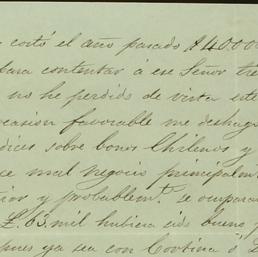 costó el año pasado $40.000
para contentar á ese Señor tre
no he perdido de vista este
ocasion favorable me deshag
dices sobre bonos Chilenos y
ce mal negocio principalm
y probablem.te se ocupara
£.63.mil hubiera sido bueno
pues ya sea con Cortina ó